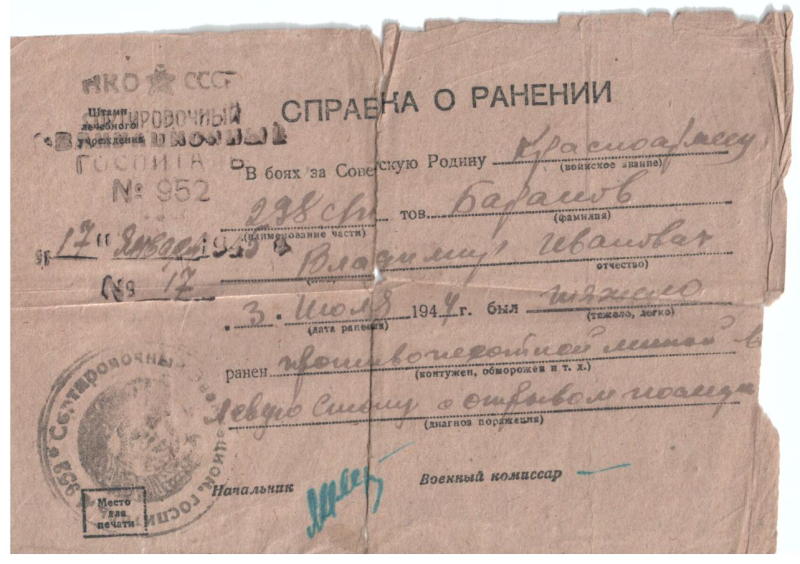 НКО СССР
Штамп
лечебного
учреждения
СОРТИРОВОЧНЫЙ
ЭВАКУАЦИОННЫЙ
ГОСПИТАЛЬ
№ 952
"17" Января 1945 г.
№ 17
СПРАВКА О РАНЕНИИ
В боях за Советскую Родину Красноармеец
(воинское звание)
298 сп тов Баранов
(наименование части) (фамилия)
Владимир Иванович
отчество)
3. Июля 1944 г. был тяжело
(дата ранения) (тяжело, легко)
ранен противопехотной миной в
(контужен, обморожен и т. х.)
левую стопу с отрывом
(диагноз поражения)
Начальник Военный комиссар
952 Сортировочный госпит
Место
для
печати